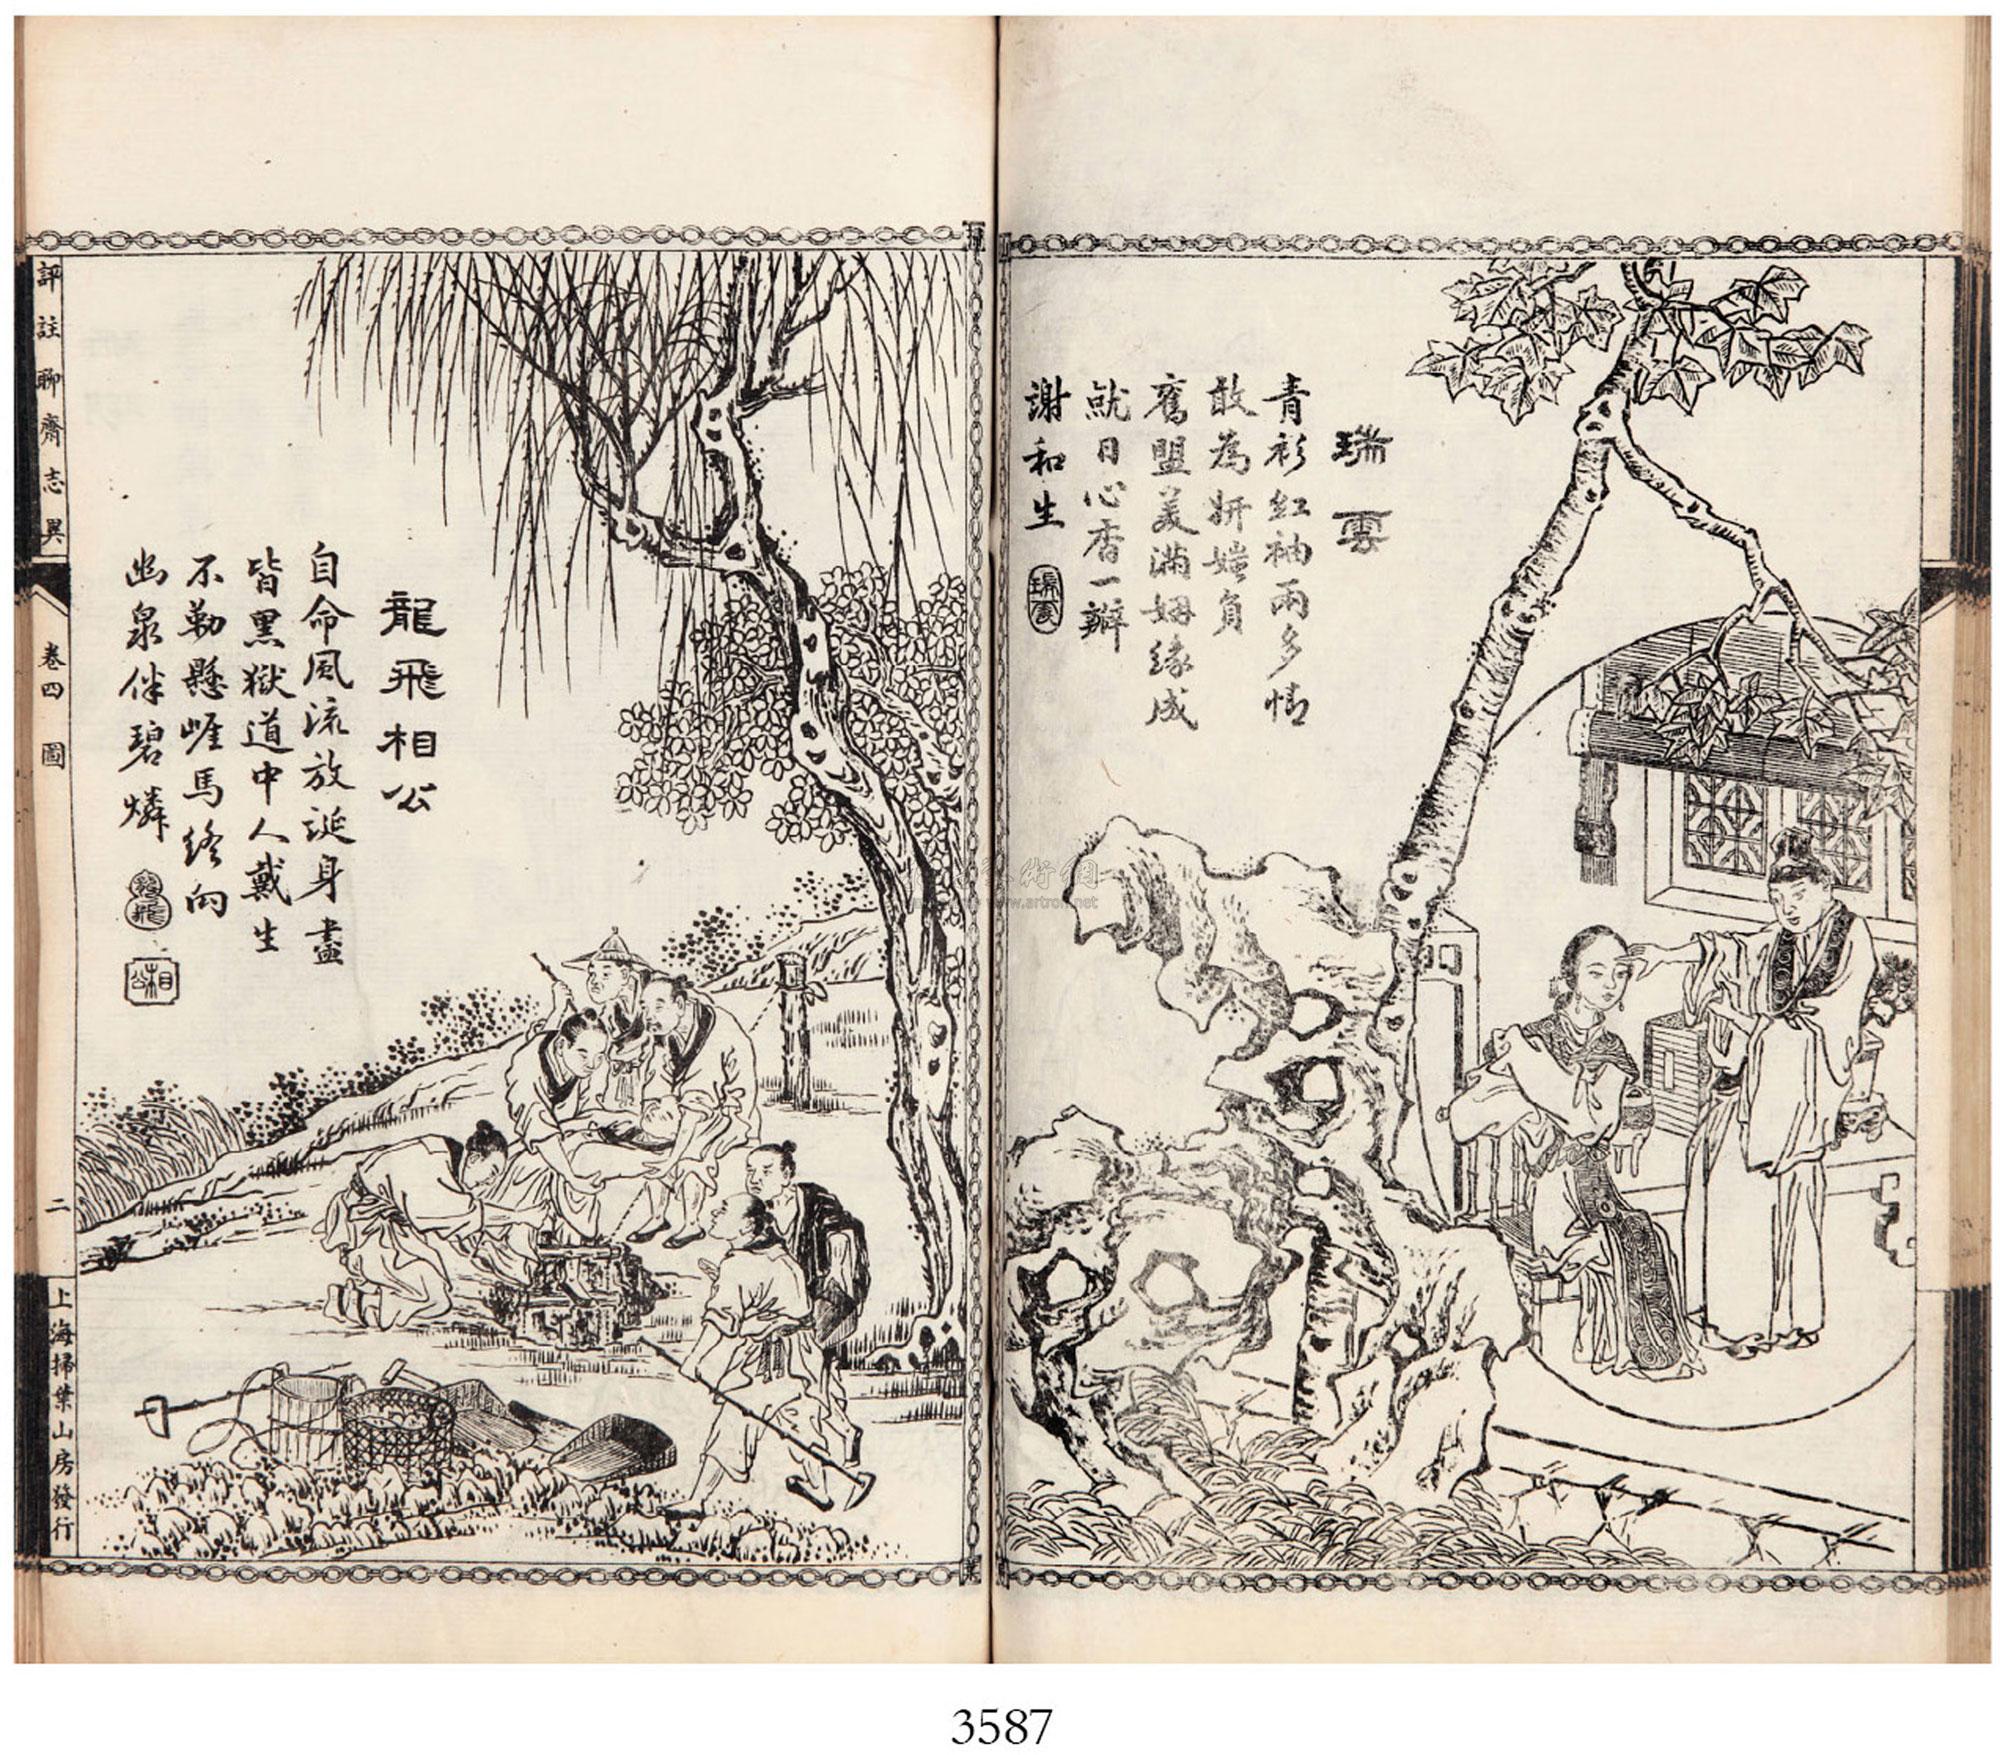 瑞雲
青衫紅袖兩多情
敢為妍媸負
舊盟美滿姻緣成
就日心香一瓣
謝和生
瑞雲
龍飛相公
自命風流放誕身盡
皆黑獄道中人戴生
不勒懸崕馬終向
幽泉伴碧燐
龍飛
相公
評註聊齋志異
卷四 圖
二
上海掃葉山房發行
www.artron.net
3587